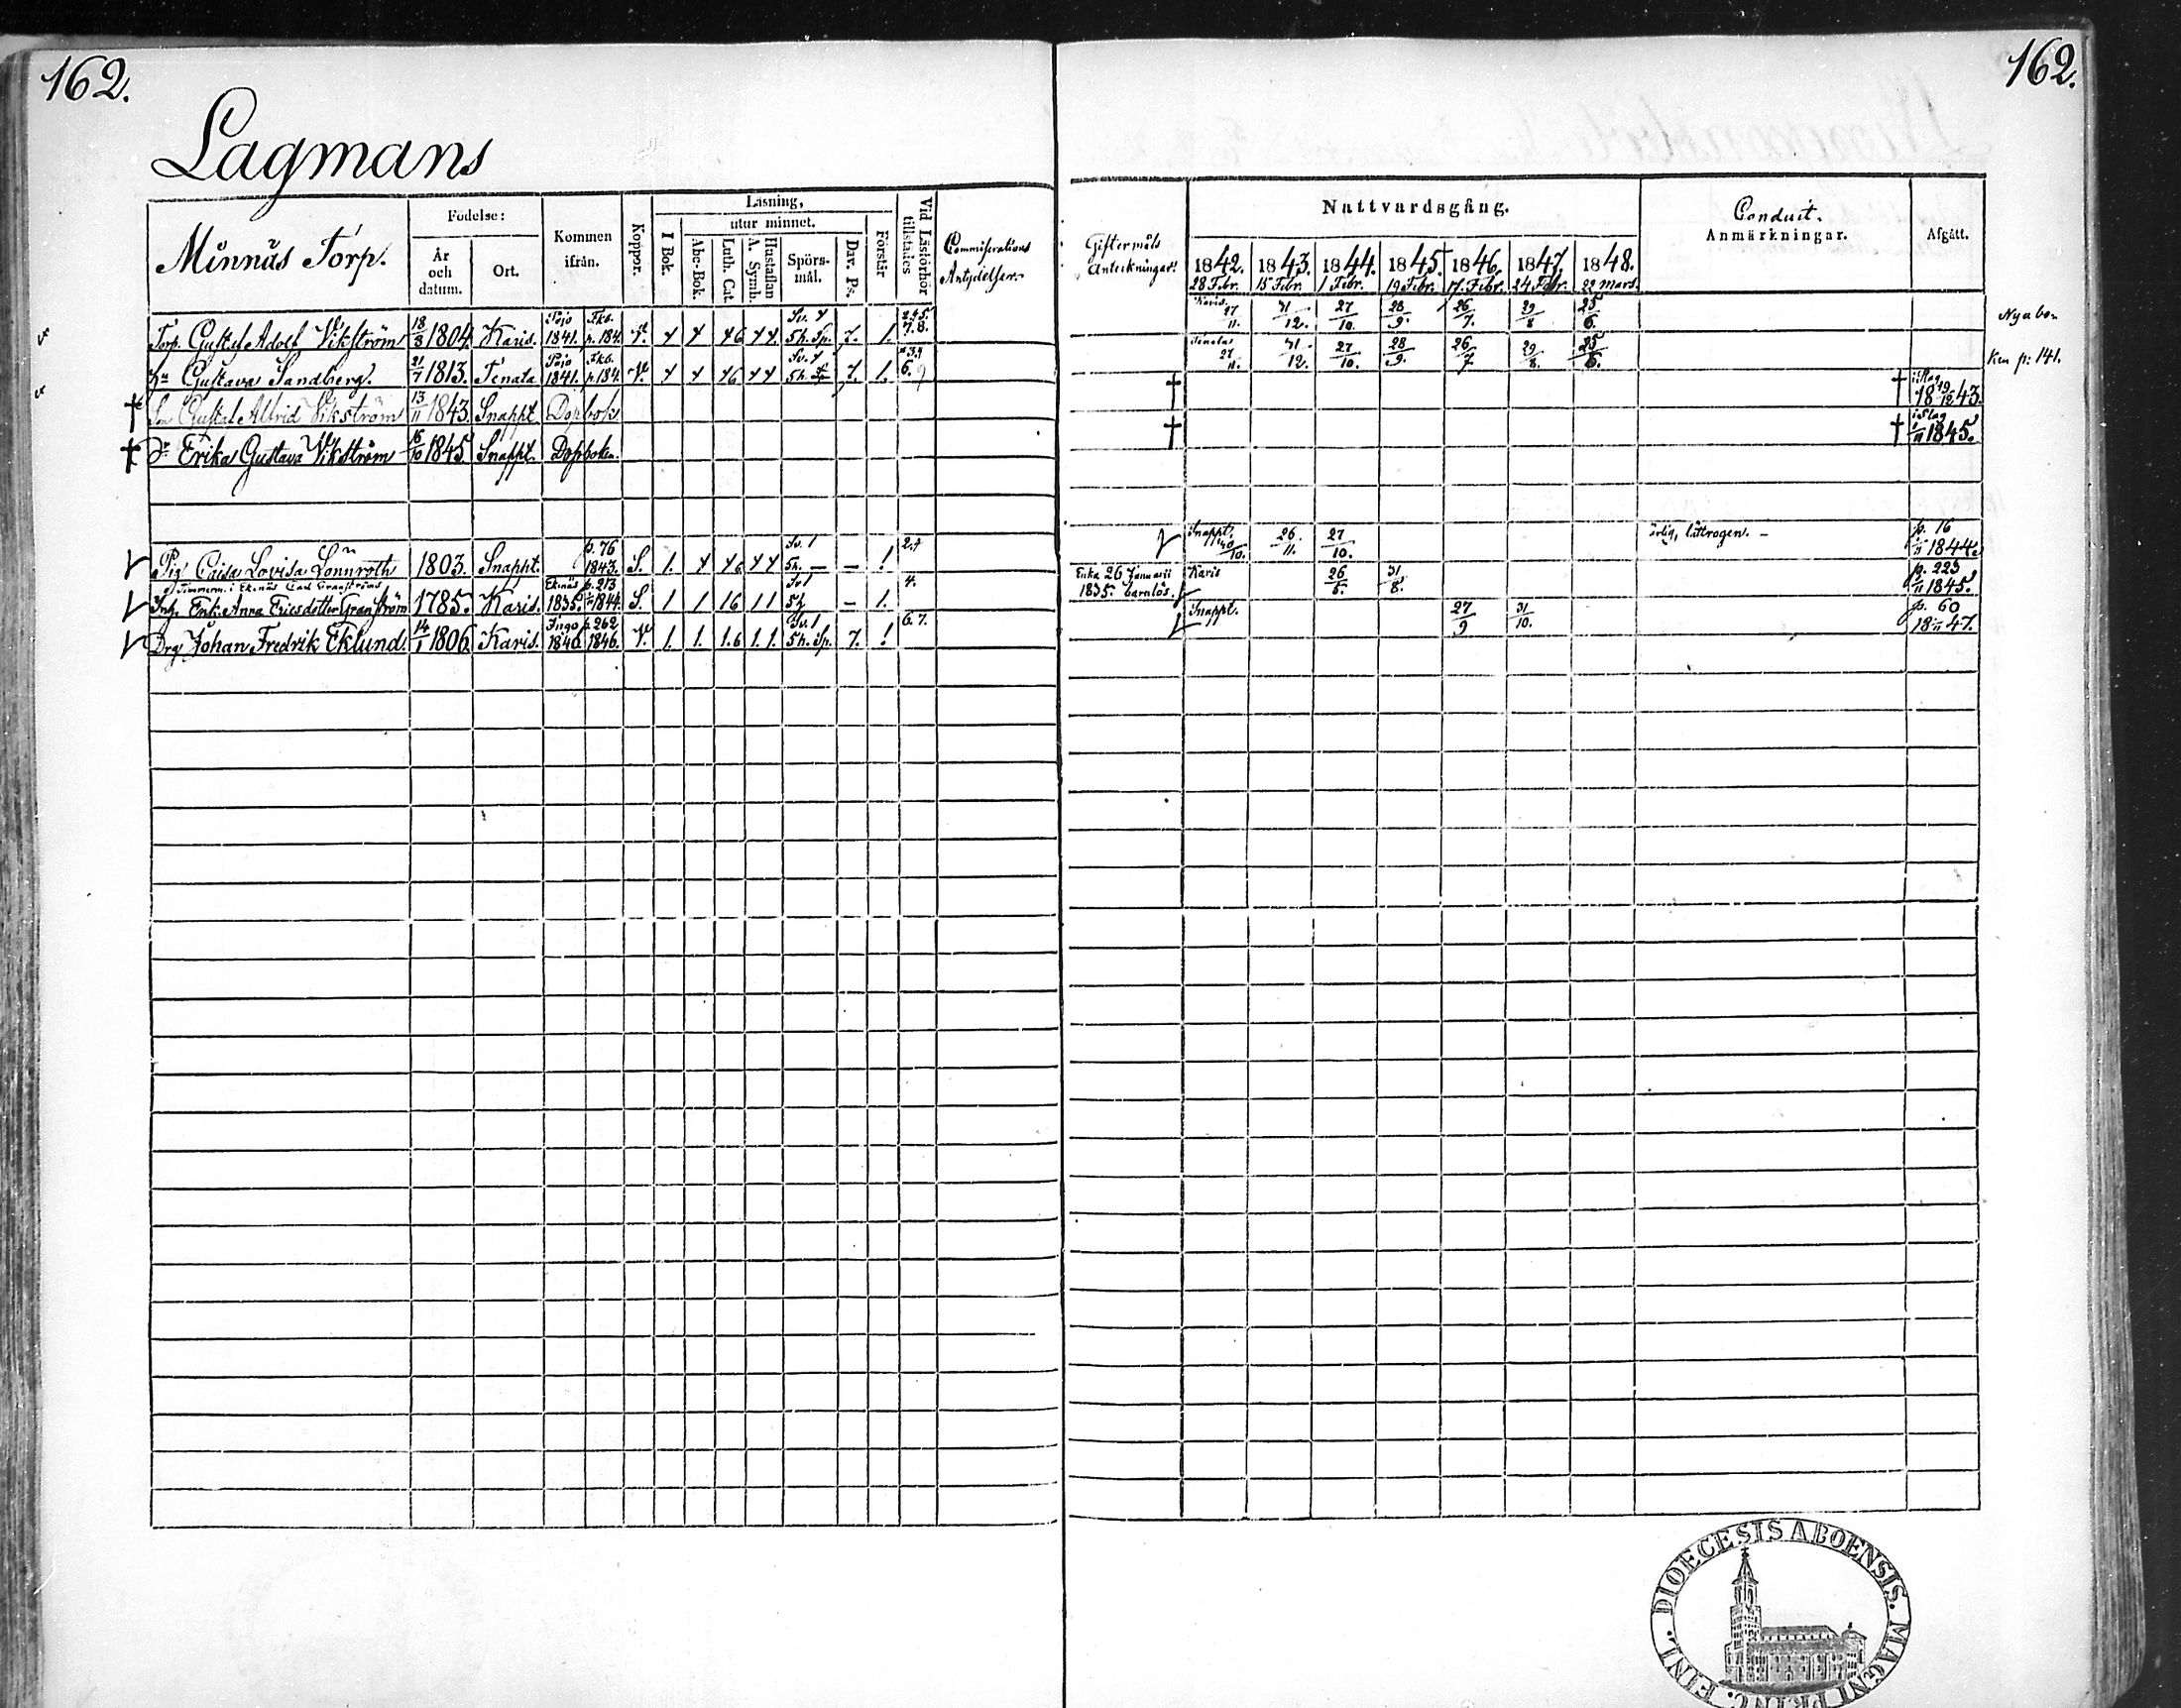 162.
162.
Lagmans
Minnäs Torp.
Födelse:
År och datum.
Ort.
Kommen ifrån.
Koppor.
Läsning,
I Bok.
utur minnet.
Abc-Bok.
Luth. Cat.
Hustaflan A. Symb.
Spörs-mål.
Dav. Ps.
Förstår
Vid Läsförhör tillstädes
Commissarians Antydelser.
Giftermåls Anteckningar.
Nattvardsgång.
1842. 1843. 1844. 1845. 1846. 1847. 1848.
28 Febr. 15 Febr. 1 Febr. 19 Febr. 17. Febr. 24 Febr. 22 Mars.
Conduit.
Anmärkningar.
Afgått.
Torp. Gustaf Adolf Vikström 18/3 1804. Karis. Pojo 1841. p. 184. V. Sv. 5h. Sp. 7. 1. 2.4.5. 7.8. Karis. 27/11. 31/12. 27/10. 28/9. 26/7. 29/8 25/6. Nya bon
Hu Gustava Sandberg. 21/7 1813. Tenala Pojo 1841. p. 184. V. Sv. 5h. Sp 7. 1. 6. Tenala 27/11. 31/12. 27/10. 28/9. 26/7 29/8. 25/6. Km p. 141.
† Son Gustaf Alfrid Vikström 13/11 1843. Snappt. Dopbok † † i Slag 18 19/12 43.
† Dr Erika Gustava Vikström 16/10 1845 Snappt. Dopboken. † † i Slag 1/11 1845.
Pig. Caisa Lovisa Lönnroth 1803. Snappt. p. 76 1843. S. 1. Sv. 1 5h. — — 1 2.4 Snappt. 30/10. 26/11. 27/10. ärlig, lättrogen. — p. 16 1/11 1844.
Timmerm. i Ekenäs Carl Granströms
Enk. Anna Ericsdotter Granström 1785. Karis. Ekenäs 1835. p. 213 1844. S. 1 1 16 1 1 Sv 1 5h — 1. 4. Enka 26 Januarii 1835. barnlös. Karis 26/5. 31/8. p. 223 1/11 1845.
Drg Johan Fredrik Eklund. 14/1 1806. Karis. Ingo 1840. p. 262 1846. V. 1. 1. 1.6 1. 1. Sv. 1 5h. Sp. 7. 1 6.7. Snappt. 27/9 31/10. p. 60 18 1/11 47.
DIOECESIS ABOENSIS. MAGNI PRINC. FINL.